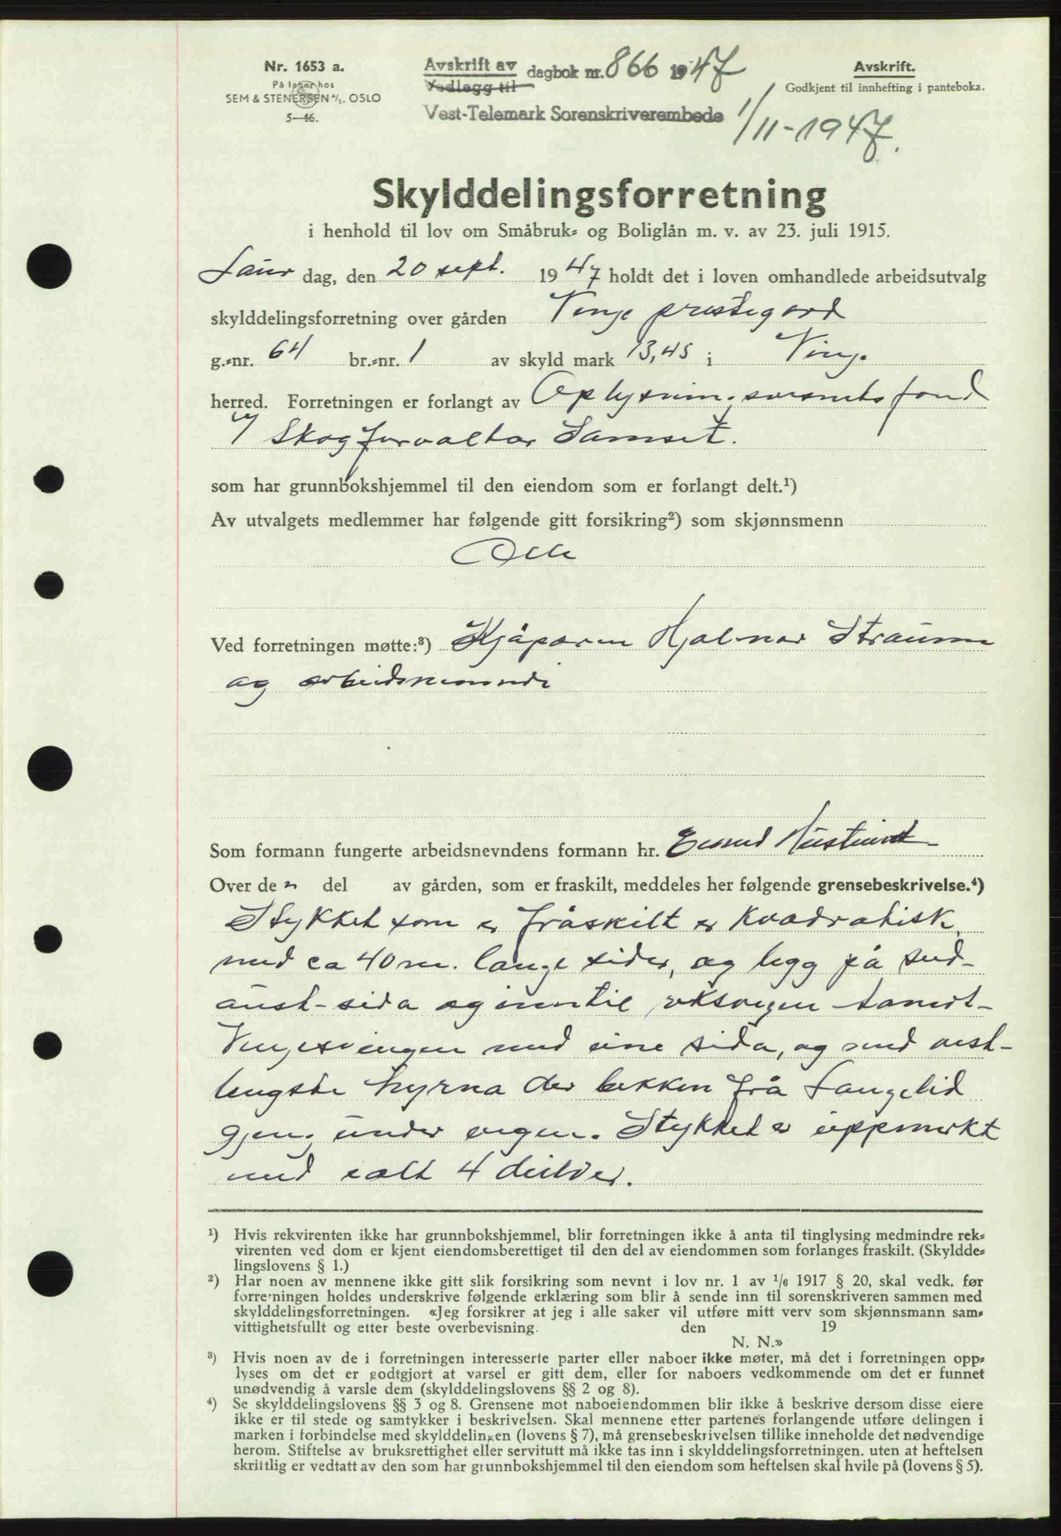 Nr. 1653 a.
På lager hos
SEM & STENERSEN A/S. OSLO
5-46.
Avskrift av
Vedlegg til
dagbok nr. 866 1947
Vest-Telemark Sorenskriverembede
1/11-1947.
Avskrift.
Godkjent til innhefting i panteboka.
Skylddelingsforretning
i henhold til lov om Småbruk- og Boliglån m. v. av 23. juli 1915.
Laur dag, den 20 sept. 1947 holdt det i loven omhandlede arbeidsutvalg
skylddelingsforretning over gården Vinje prestegard
g.-nr. 64 br.-nr. 1 av skyld mark 13,45 i Vinje
herred. Forretningen er forlangt av Oplysningsvesenets fond
v/ Skogforvaltar Samset.
som har grunnbokshjemmel til den eiendom som er forlangt delt.¹)
Av utvalgets medlemmer har følgende gitt forsikring²) som skjønnsmenn
Alle
Ved forretningen møtte:³) Kjøparen Hjalmar Straume
og arbeidsnemndi
Som formann fungerte arbeidsnevndens formann hr.
Over de n del av gården, som er fraskilt, meddeles her følgende grensebeskrivelse.⁴)
Stykket som er fråskilt er kvadratisk,
med ca 40 m. lange sider, og ligg på sud-
aust-sida og inntil riksvegen
Vinjesvingen med eine sida, og med vest-
lengste hyrna der bekken frå Langelid
gjeng under vegen. Stykket er uppmerkt
med ialt 4 deilder.
¹) Hvis rekvirenten ikke har grunnbokshjemmel, blir forretningen ikke å anta til tinglysing medmindre rek-
virenten ved dom er kjent eiendomsberettiget til den del av eiendommen som forlanges fraskilt. (Skyldde-
lingslovens § 1.)
²) Har noen av mennene ikke gitt slik forsikring som nevnt i lov nr. 1 av 1/6 1917 § 20, skal vedk. før
forretningen holdes underskrive følgende erklæring som blir å sende inn til sorenskriveren sammen med
skylddelingsforretningen. «Jeg forsikrer at jeg i alle saker vil utføre mitt verv som skjønnsmann sam-
vittighetsfullt og etter beste overbevisning. den 19
N. N.»
³) Hvis noen av de i forretningen interesserte parter eller naboer ikke møter, må det i forretningen opp-
lyses om det er godtgjort at varsel er gitt dem, eller for naboers vedkommende om det er funnet
unødvendig å varsle dem (skylddelingslovens §§ 2 og 8).
⁴) Se skylddelingslovens §§ 3 og 8. Grensene mot naboeiendommen blir ikke å beskrive dersom disse eiere
ikke er til stede og samtykker i beskrivelsen. Skal mennene etter partenes forlangende utføre delingen i
marken i forbindelse med skylddelingen (lovens § 7), må grensebeskrivelsen tillike inneholde det nødvendige
herom. Stiftelse av bruksrettighet eller servitutt må ikke tas inn i skylddelingsforretningen, uten at heftelsen
skriftlig er vedtatt av den som har grunnbokshjemmel til den eiendom som heftelsen skal hvile på (lovens § 5).